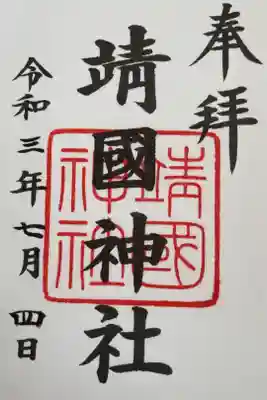 奉拜
靖國神社
令和三年七月四日
靖國
神社